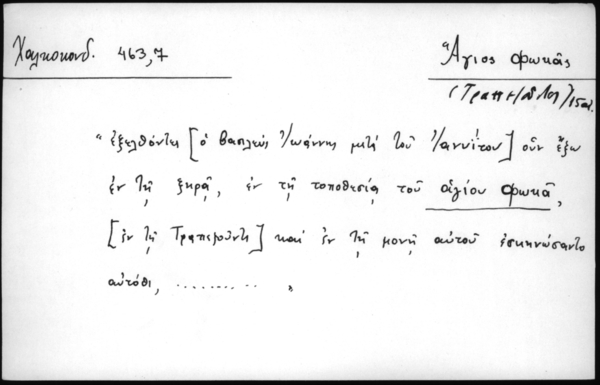 Χαλκοκονδ. 463,7
Ἅγιος Φωκᾶς
"ἐξελθόντες [ὁ βασιλεὺς Ἰωάννης μετὰ τοῦ Ἰαννίτου] οὖν ἔξω
ἐν τῇ ξηρᾷ, ἐν τῇ τοποθεσίᾳ τοῦ ἁγίου Φωκᾶ,
[ἐν τῇ Τραπεζοῦντι] καὶ ἐν τῇ μονῇ αὐτοῦ ἐσκηνώσαντο
αὐτόθι, .......... "